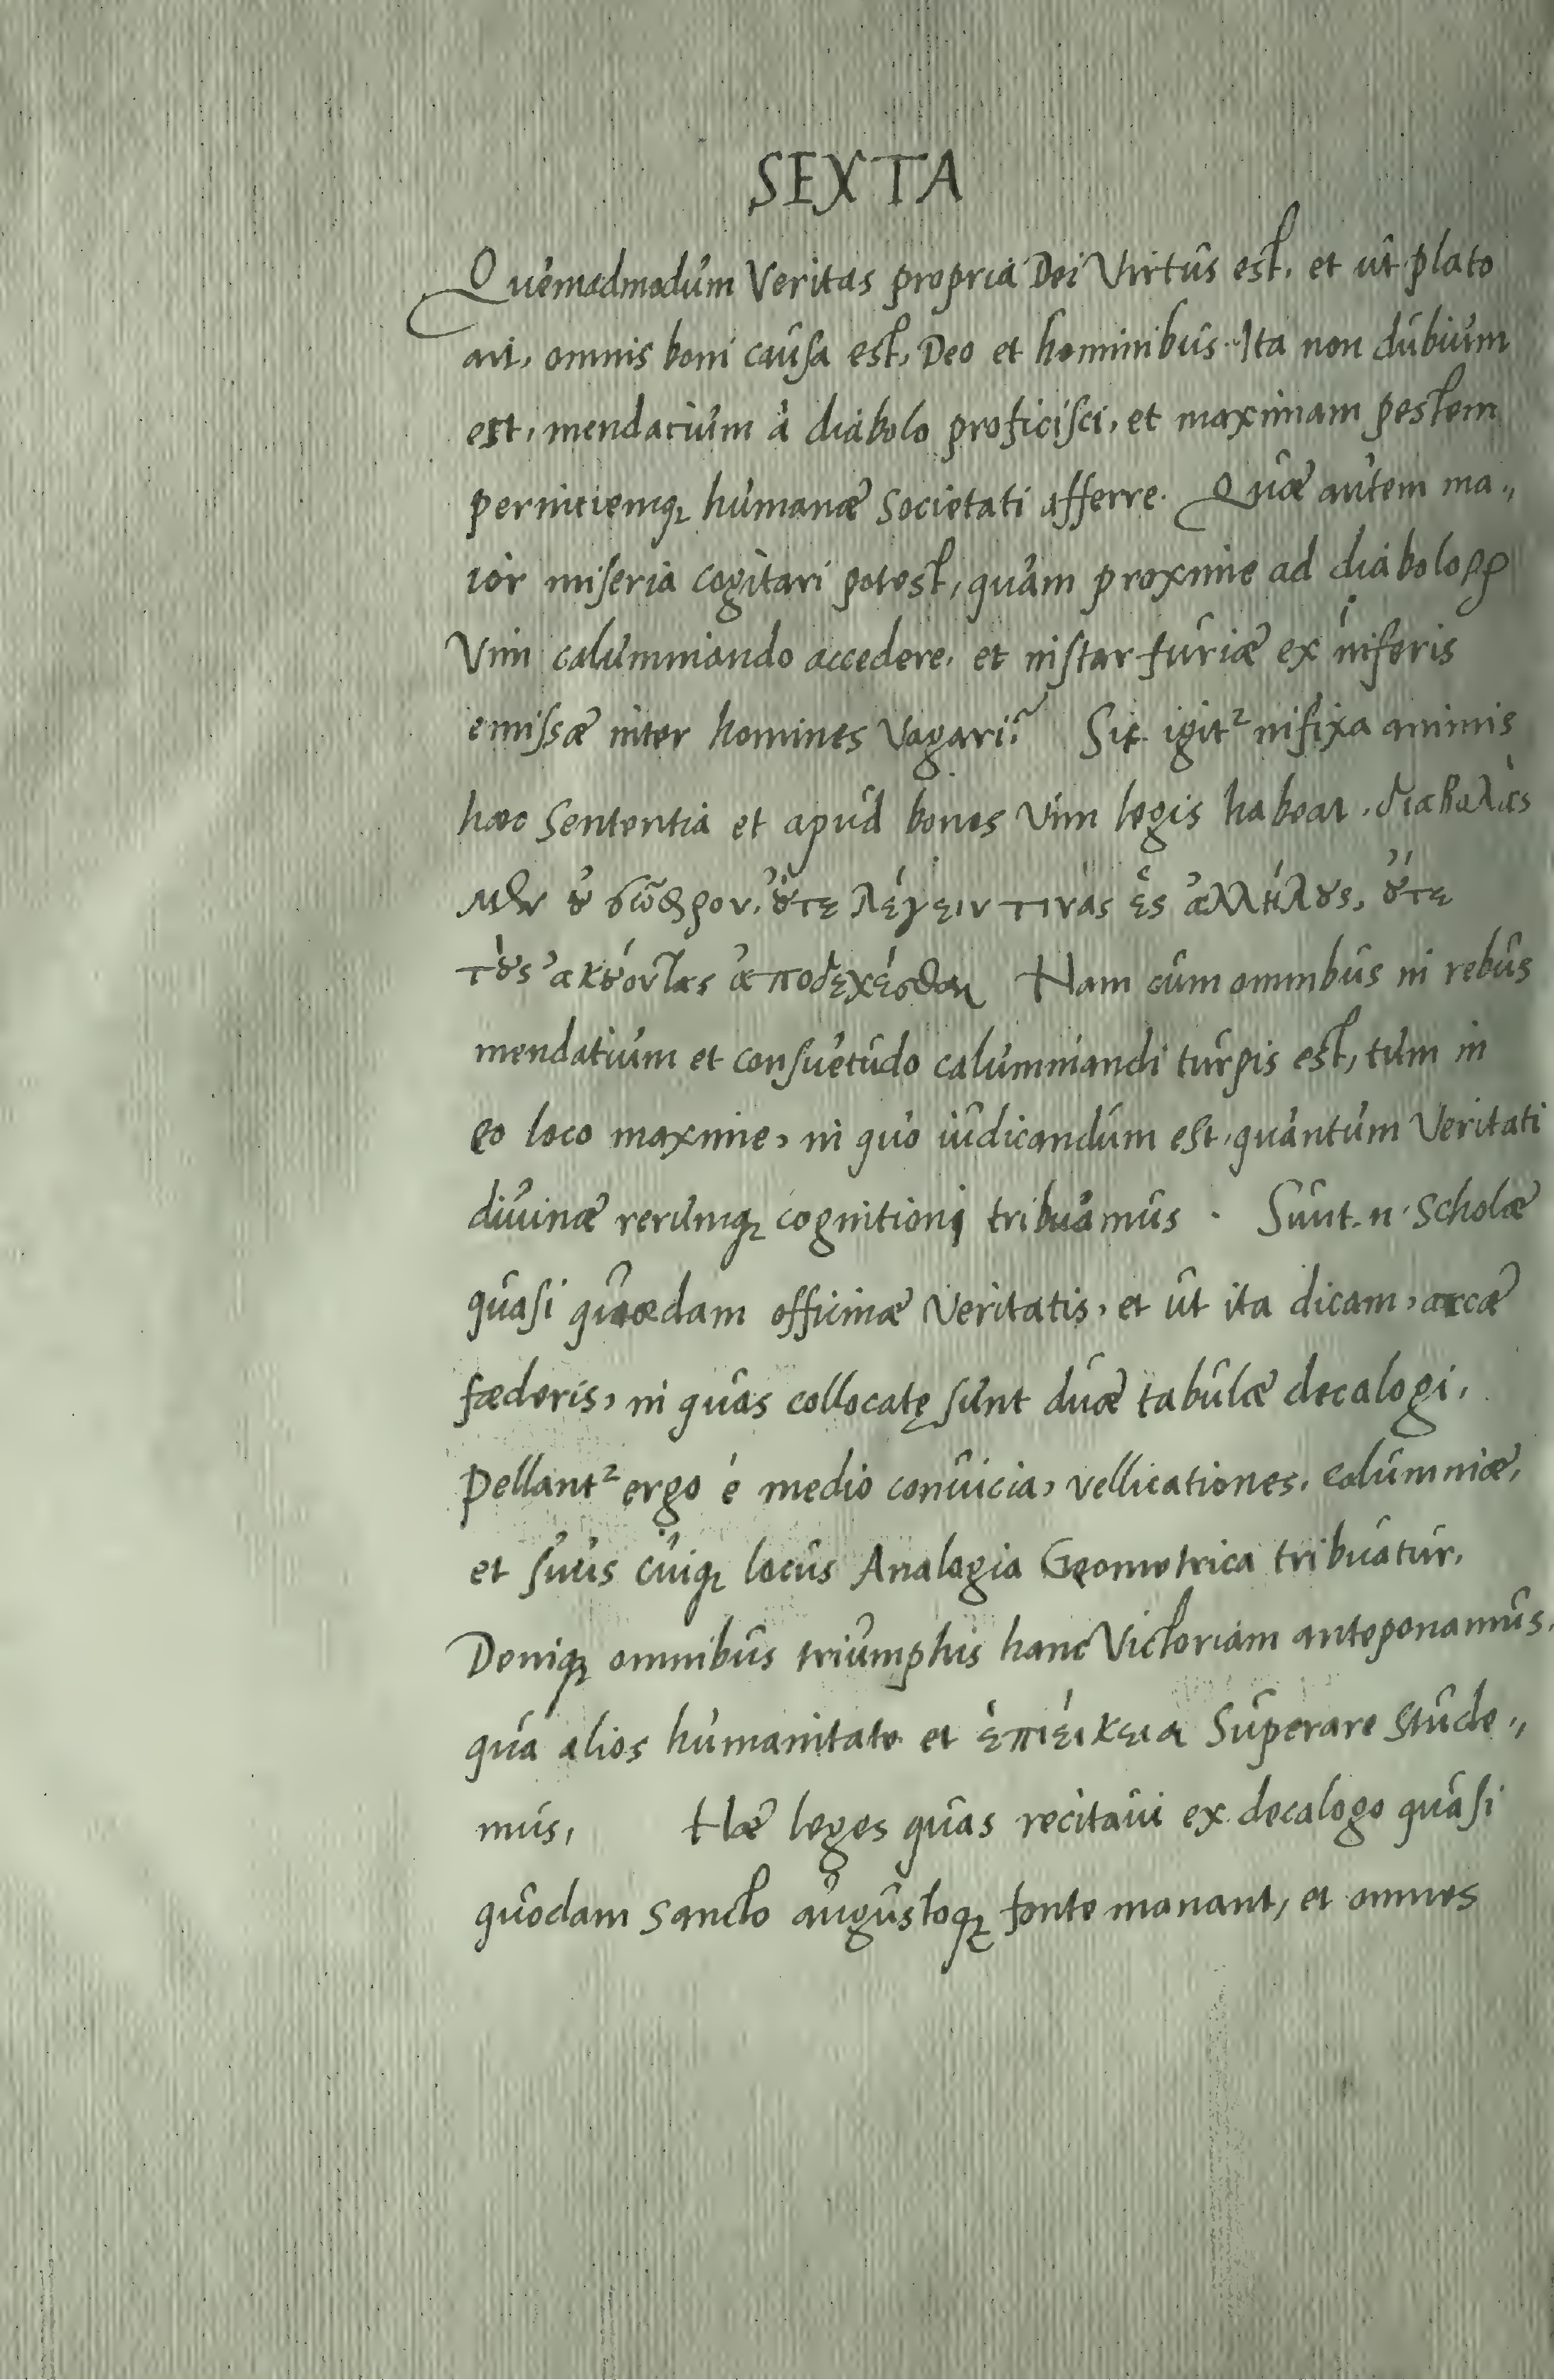 SEXTA
Quemadmodum Veritas propria Dei Virtus est, et ut plato
ait, omnis boni causa est, Deo et hominibus. Ita non dubium
est, mendacium à diabolo proficisci, et maximam pestem
pernitiemq; humanæ Societati afferre. Quæ autem ma„
ior miseria cogitari potest, quam proxime ad diaboloꝝ
Vim calumniando accedere, et instar furiæ ex inferis
emissæ inter homines Vagari? Sit igit² infixa animis
hæc Sententia et apud bonos Vim legis habeat, διαβολὰς
μὲν ȣ̓ σῶφρον, ȣ̓́τε λέγειν τινὰς ἐς ἀλλήλȣς, ȣ̓́τε
τȣ̀ς ἀκȣ́οντας ἀποδεχέσθαι Nam cum omnibus in rebus
mendatium et consuetudo calumniandi turpis est, tum in
eo loco maxime, in quo iudicandum est, quantum Veritati
diuinæ rerumq; cognitioni tribuamus. Sunt .n. Scholæ
quasi quædam officinæ Veritatis, et ut ita dicam, arcæ
fæderis, in quas collocatę sunt duæ tabulæ decalogi,
Pellant² ergo é medio conuicia, vellicationes, calumniæ,
et suus cuiq; locus Analogia Geometrica tribuatur,
Deniq; omnibus triumphis hanc Victoriam anteponamus,
qua alios humanitate et ἐπιείκεια Superare Stude„
mus, Hæ leges quas recitaui ex decalogo quasi
quodam Sancto augustoq; fonte manant, et omnes